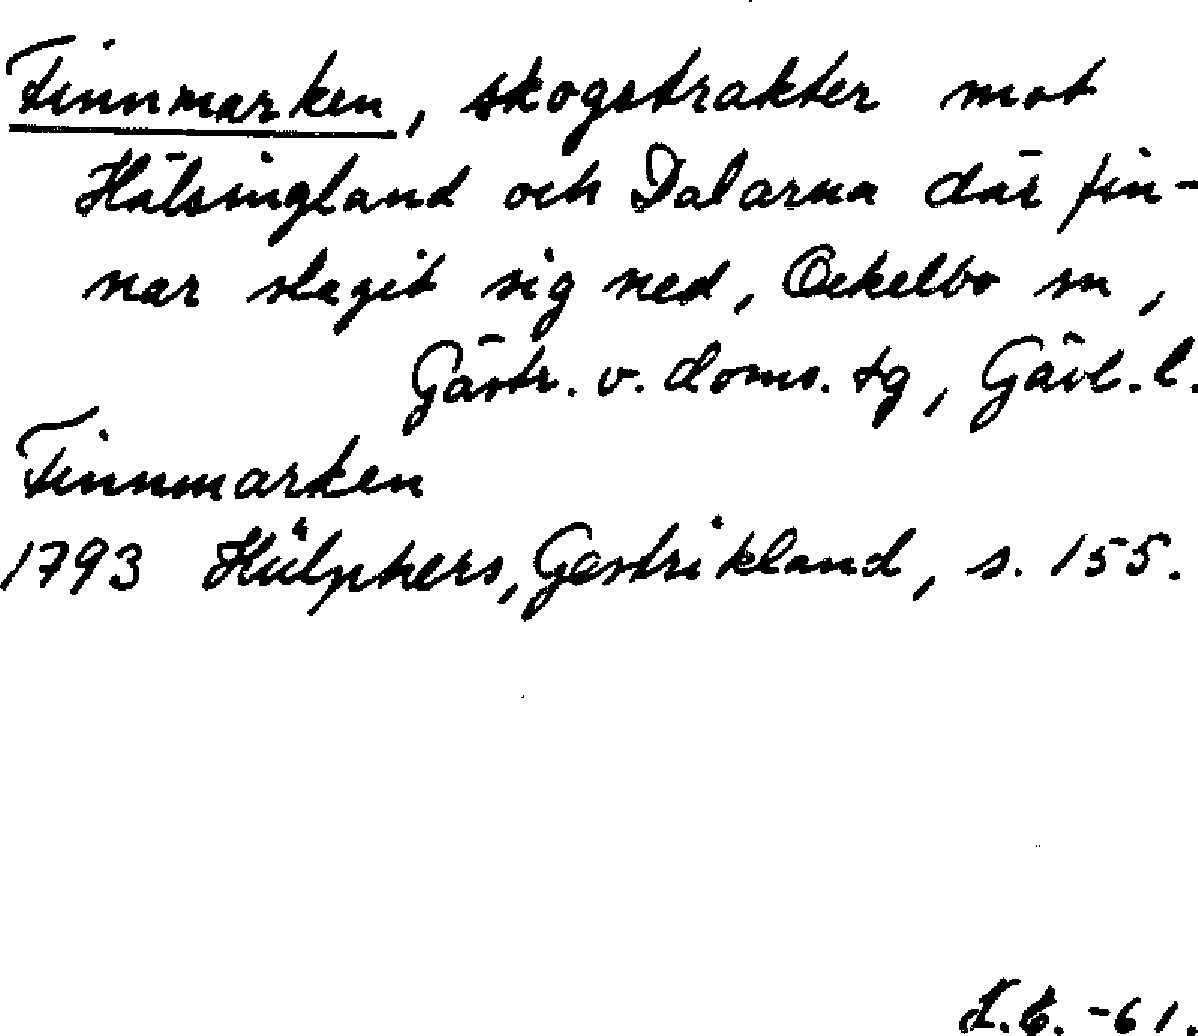 Finnmarken, skogstrakter mot
Hälsingland och Dalarna där fin-
nar slagit sig ned, Ockelbo sn,
Gästr. v. doms. tg, Gävl. l.
Finnmarken
1793 Hülphers, Gestrikland, s. 155.
-61.